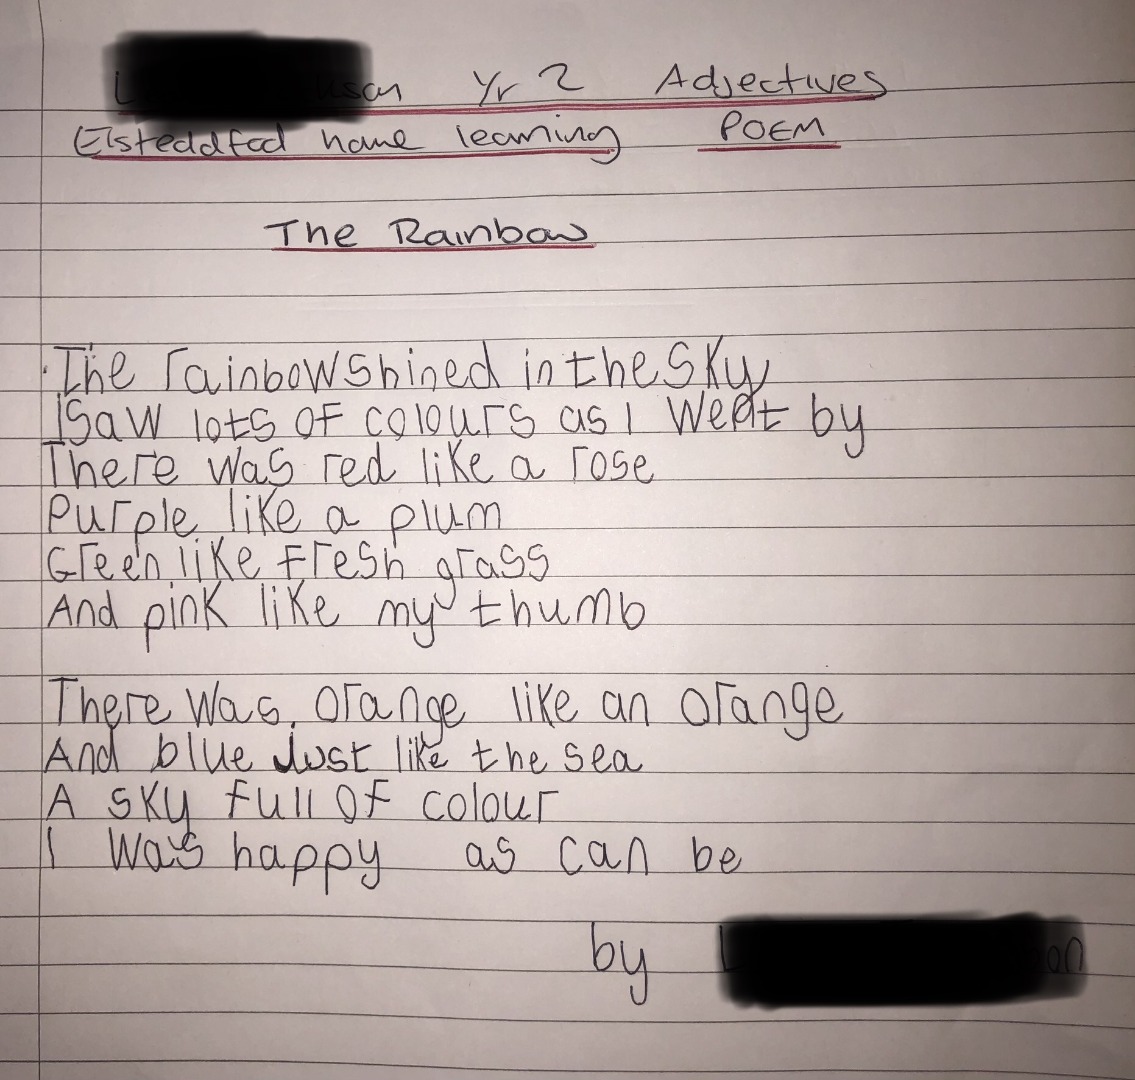 Yr 2 Adjectives
Eisteddfod home learning POEM
The Rainbow
The rainbow shined in the sky
I saw lots of colours as I went by
There was red like a rose
Purple like a plum
Green like fresh grass
And pink like my thumb
There was orange like an orange
And blue Just like the sea
A sky full of colour
I was happy as can be
by